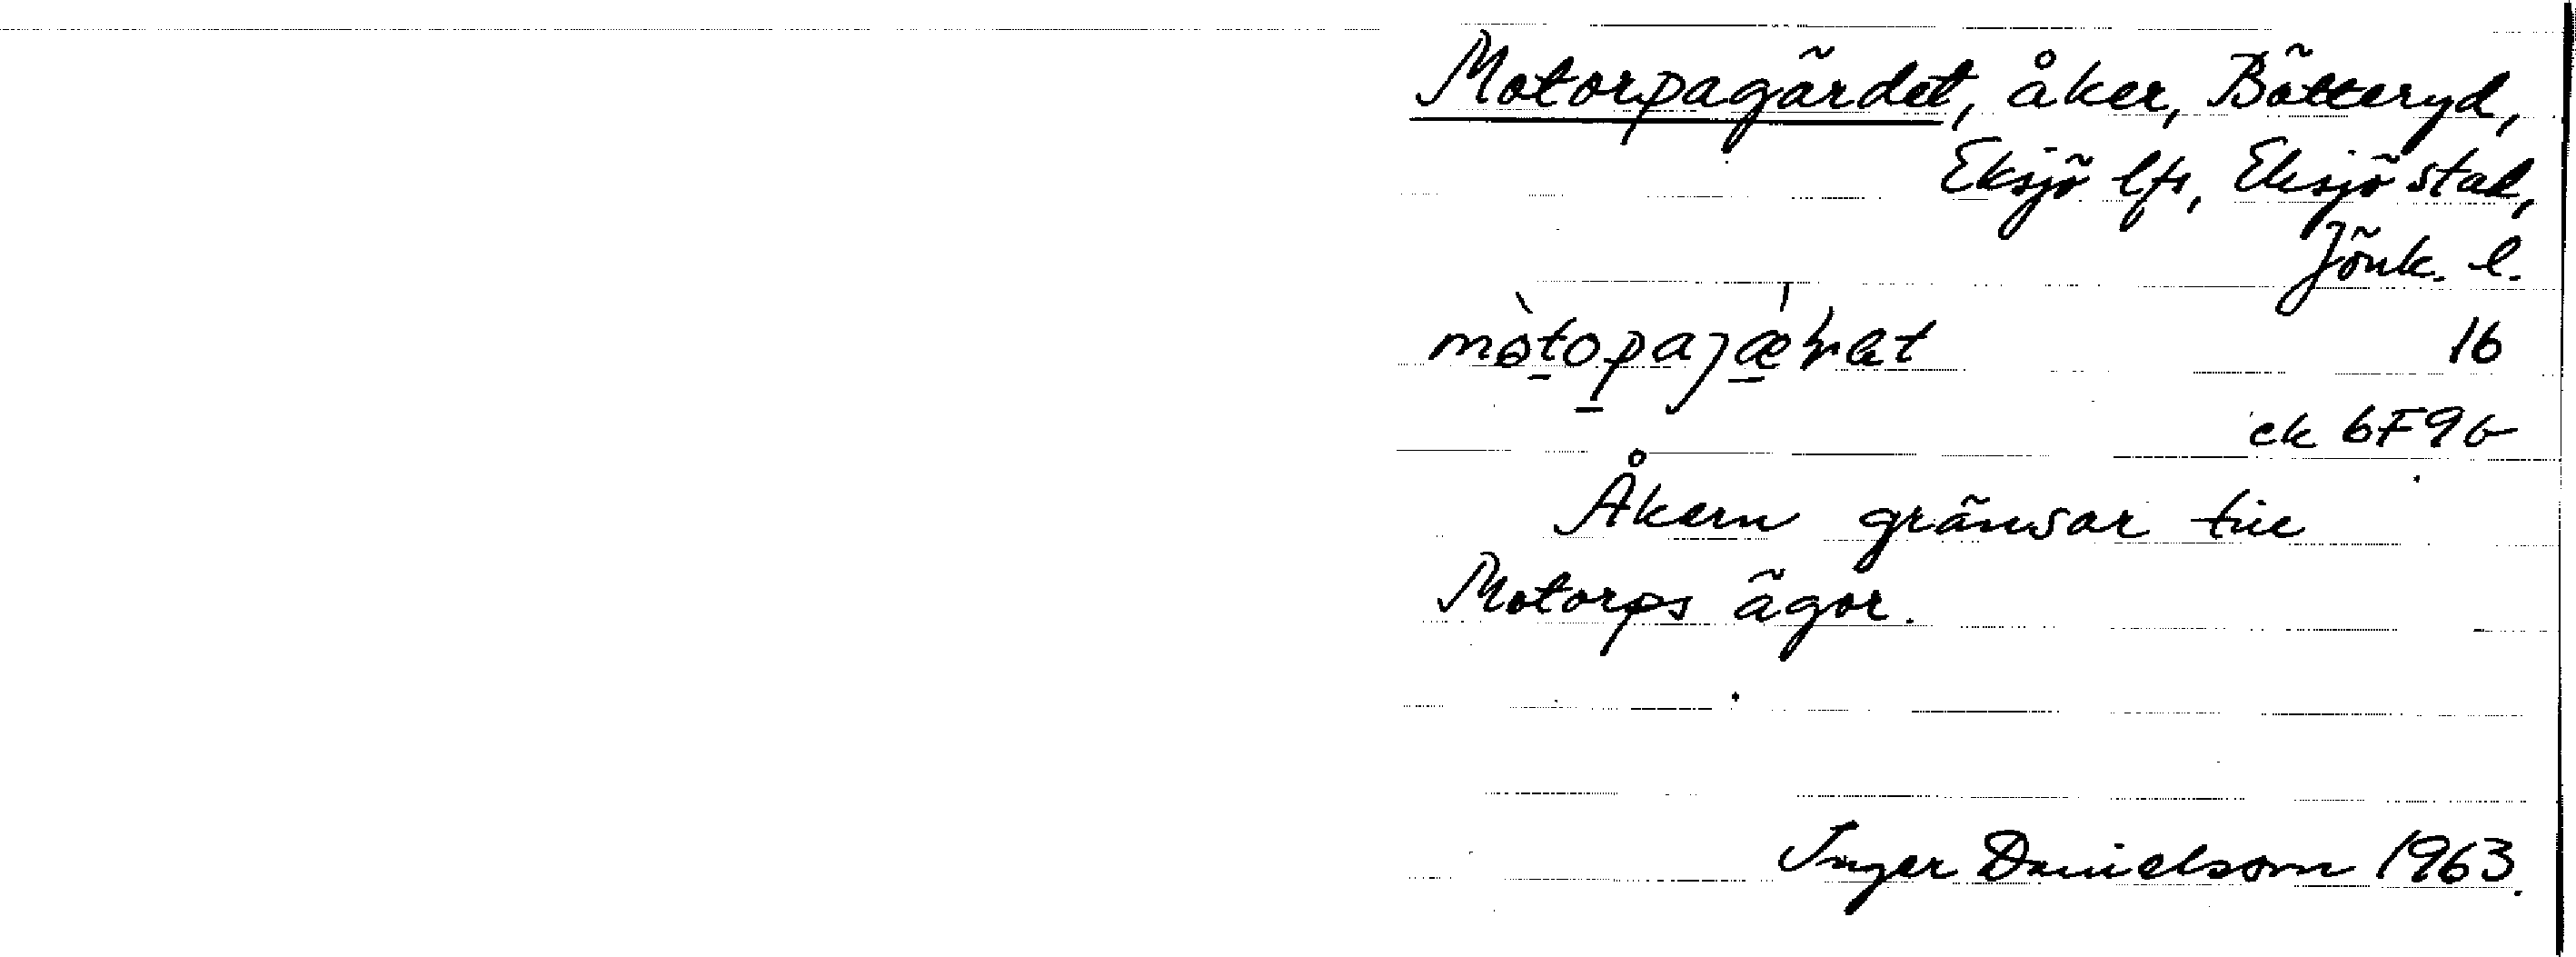 Motorpagärdet, åker, Bötteryd,
Eksjö lfs, Eksjö stad,
Jönk. l.
16
ek 6F9b
Åkern gränsar till
Motorps ägor.
Inger Danielsson 1963.